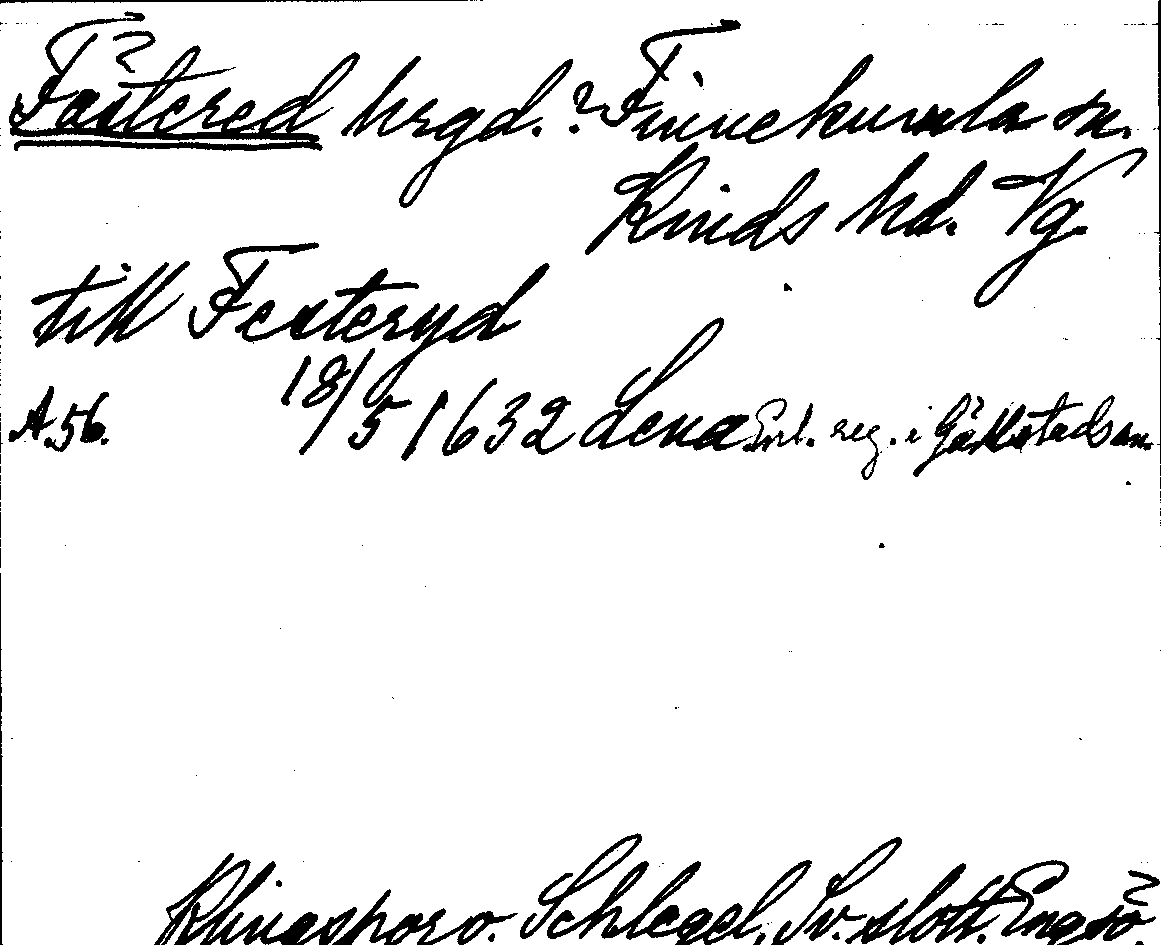 Fästered hrgd.? Finnekumla sn.
Kinds hd. Vg.
till Festeryd
18/5 1632 Lena Enl. reg. i Gällstads sn.
A.56.
Klingspor o. Schlegel, Sv. slott. Engsö.